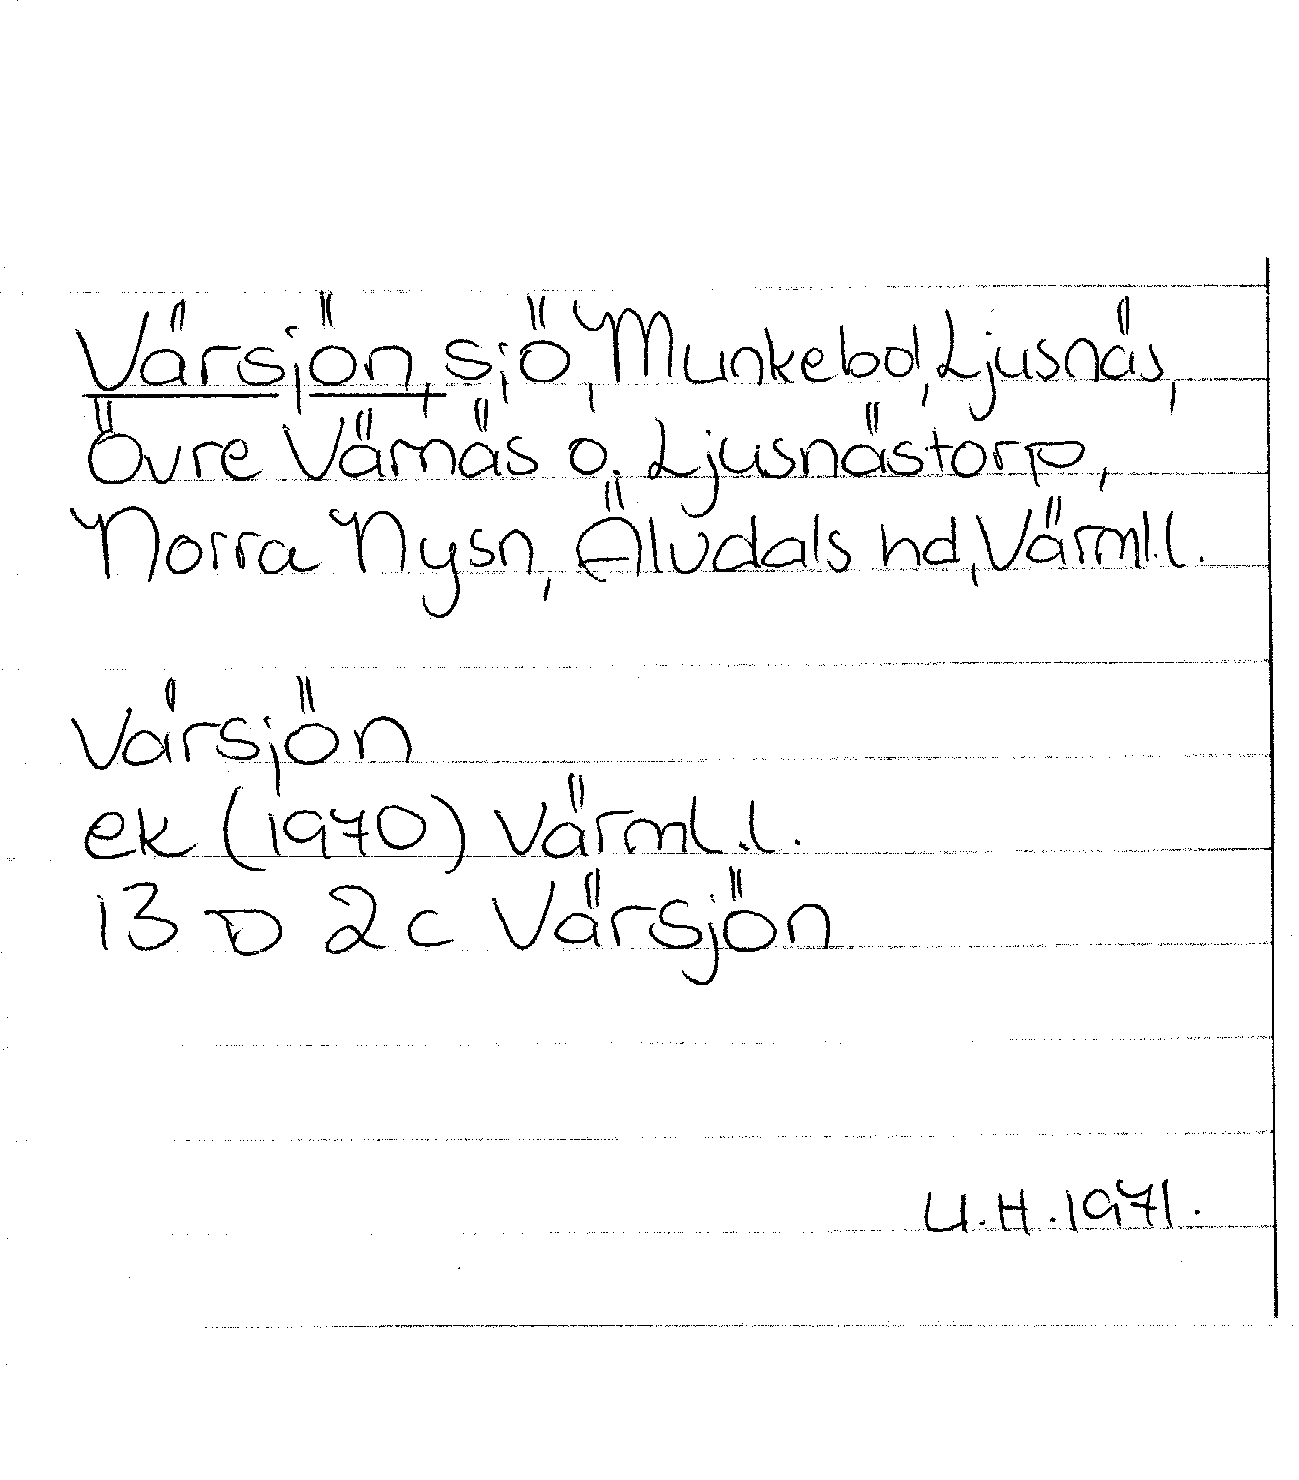 Värsjön, sjö, Munkebol, Ljusnäs,
Övre Värnäs o. Ljusnästorp,
Norra Nysn, Älvdals hd, Värml.l.
Värsjön
ek (1970) Värml.l.
13 D 2c Värsjön
U.H. 1971.